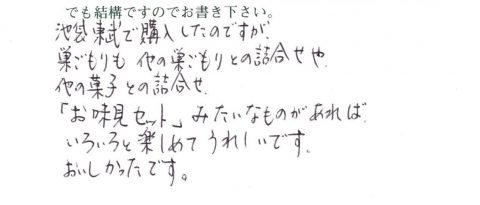 でも結構ですのでお書き下さい。
池袋東武で購入したのですが、
巣ごもりも 他の巣ごもりとの詰合せや、
他の菓子との詰合せ、
「お味見セット」みたいなものがあれば、
いろいろと楽しめてうれしいです。
おいしかったです。